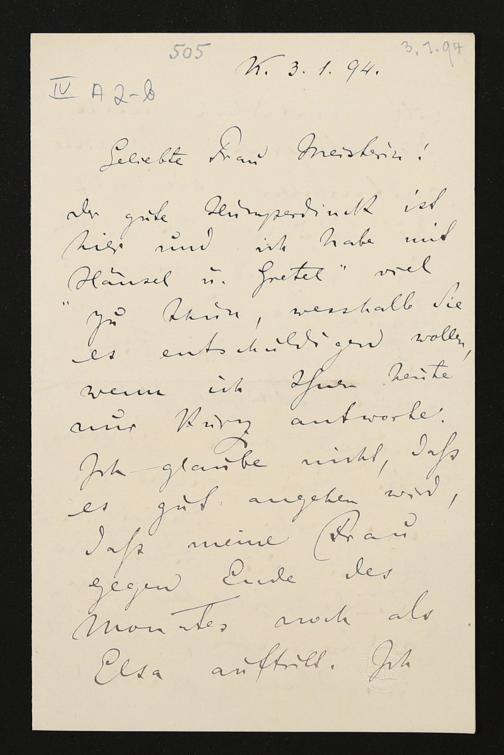 505
3.1.94
K. 3. 1. 94.
IV A 2-b
Geliebte Frau Meisterin!
Der gute Humperdinck ist
hier und ich habe mit
Hänsel u. Gretel" viel
"zu thun, wesshalb Sie
es entschuldigend wollen,
wenn ich Ihnen heute
nur kurz antworte.
Ich glaube nicht, daß
es gut angehen wird,
daß meine Frau
gegen Ende des
Monates noch als
Elsa auftritt. Ich